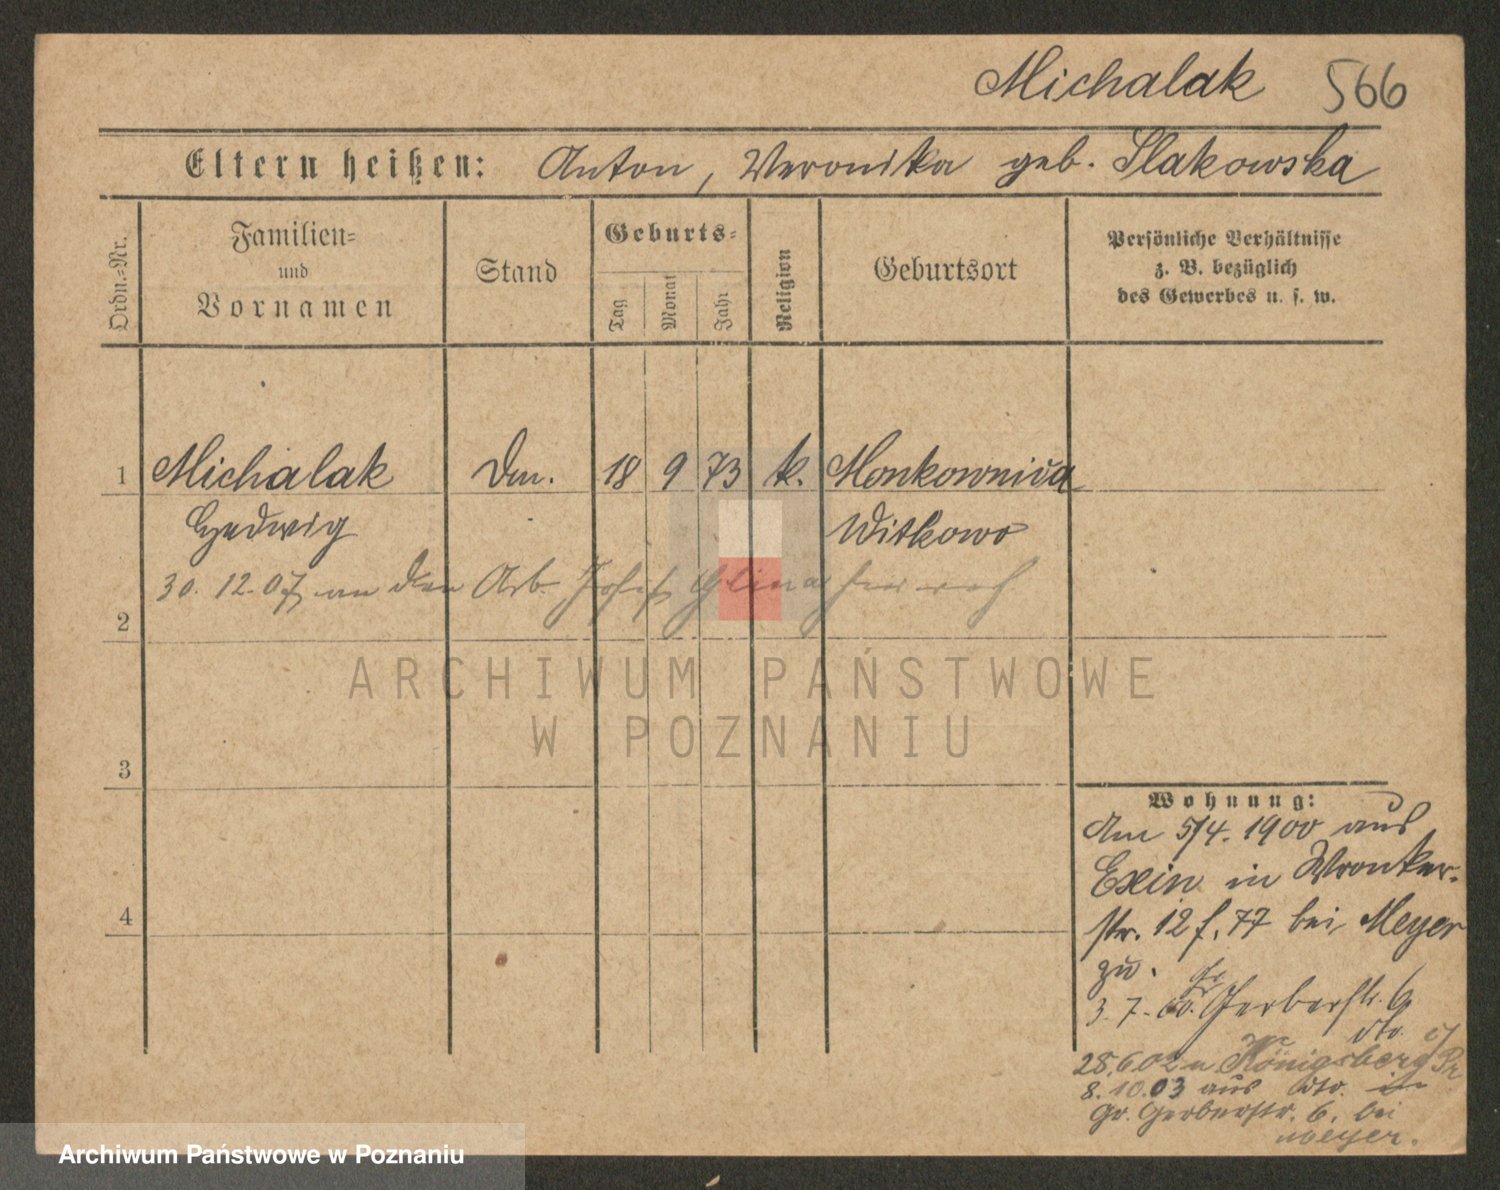 Michalak 566
Eltern heißen: Anton, Veronika geb. Slakowska
Ordn.-Nr.
Familien-
und
Vornamen
Stand
Geburts-
Tag
Monat
Jahr
Religion
Geburtsort
Persönliche Verhältnisse
z. B. bezüglich
des Gewerbes u. s. w.
1 Michalak Dm. 18 9 73 k. Monkownica
Hedwig Witkowo
30. 12. 07 an den Arb. Josef
2
ARCHIWUM PAŃSTWOWE
W POZNANIU
3
Wohnung:
Am 5/4. 1900 aus
Exin in Wronker-
str. 12 f. 77 bei Meyer
zu.
3. 7. 00. Gr. Gerberstr. 6
dto.
28.6.02 n Königsberg i/Pr
8.10.03 aus dto. in
Gr. Gerberstr. 6. bei
Meyer.
4
Archiwum Państwowe w Poznaniu